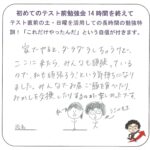 初めてのテスト前勉強会14時間を終えて
テスト直前の土・日曜を活用しての長時間の勉強特
訓！「これだけやったんだ」という自信が付きます。
家でやると、ダラダラしちゃうけど、
ここに来たら、みんなも頑張っている
ので、私も頑張ろう!という気持ちになり
ました。みんなでお昼ご飯を食べたり、
おかしを交換したりするのが楽しかったです。
氏名